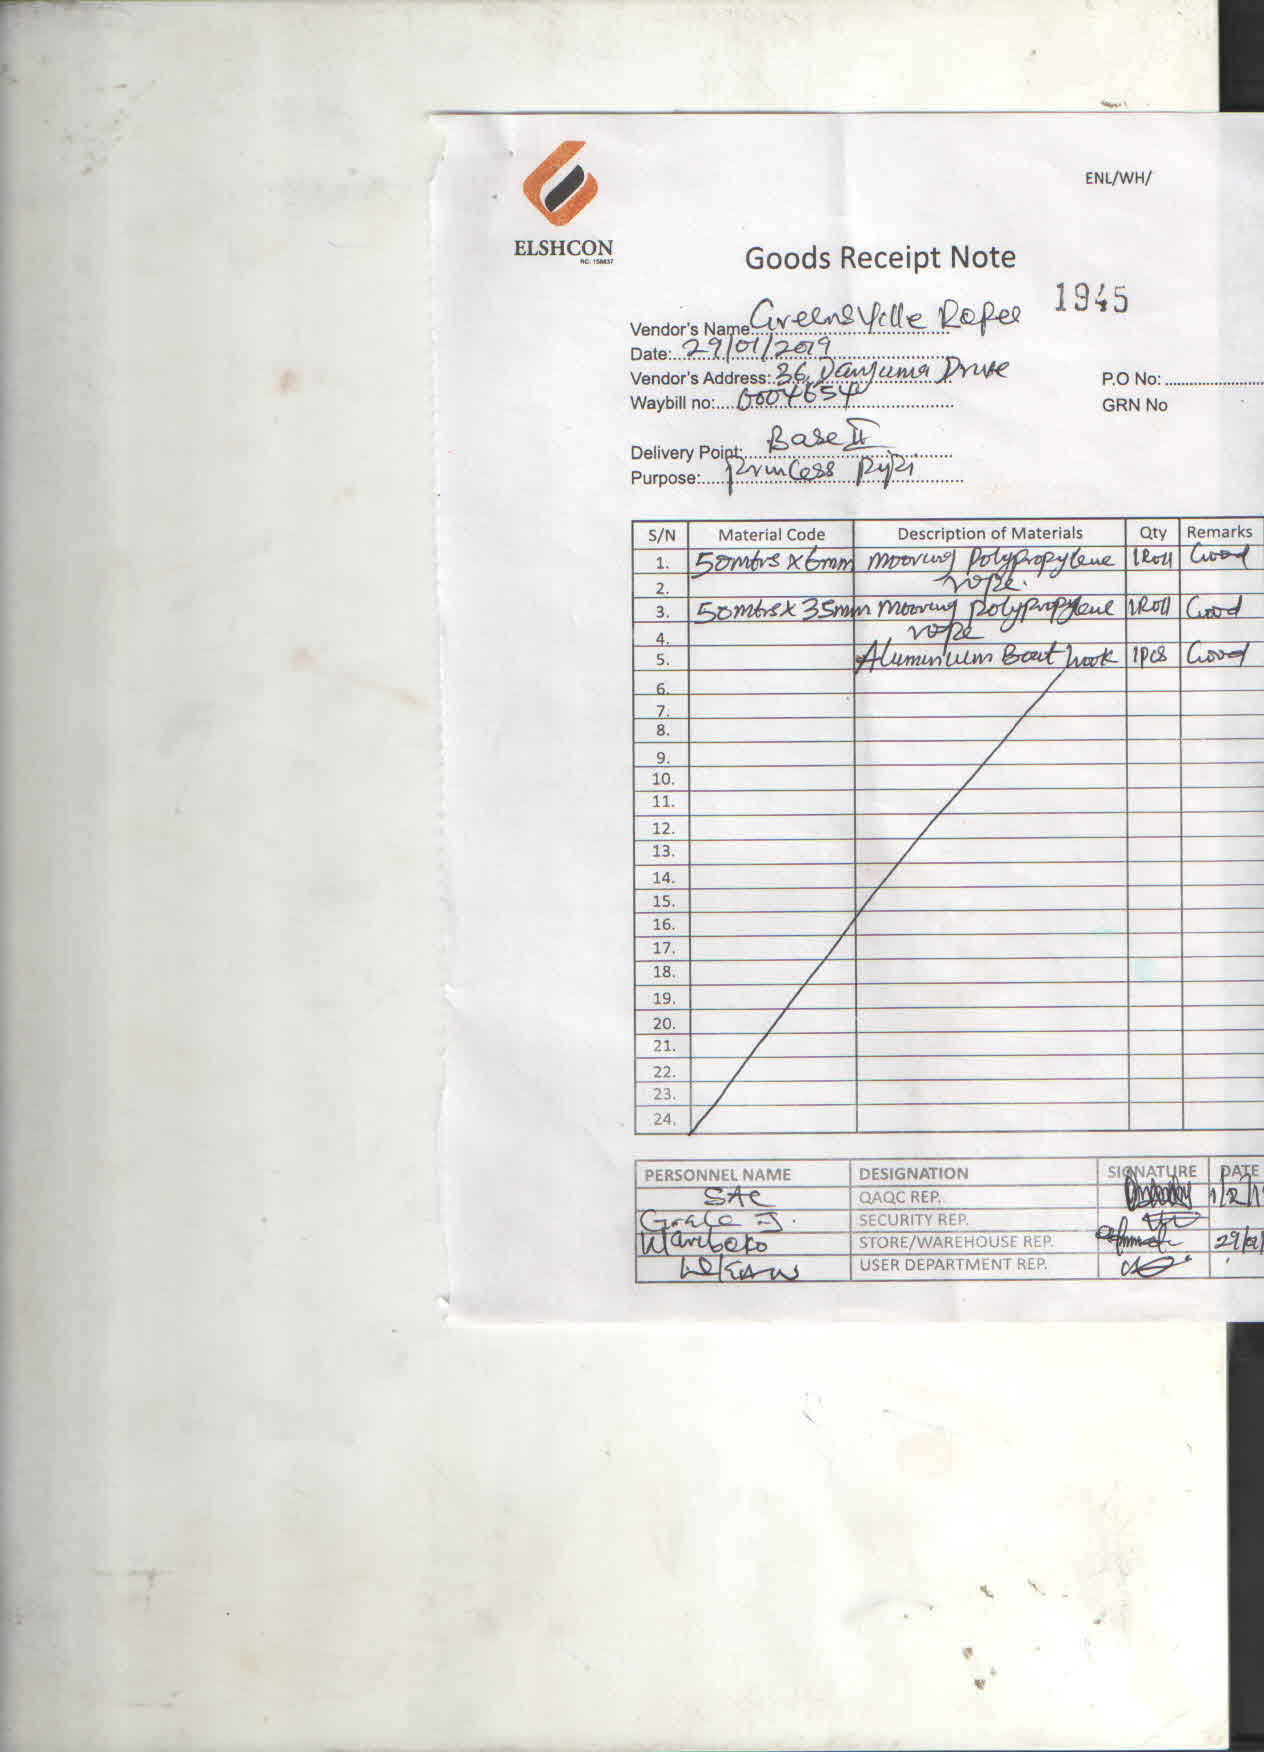 ENL/WH/
ELSHCON
RC: 158837
Goods Receipt Note
1945
Vendor's Name: Greensville Ropes
Date: 29/01/2019
Vendor's Address: 36, Danjuma Drive
P.O No:
Waybill no: 0004654
GRN No
Delivery Point: Base II
Purpose: Princess Piri
S/N Material Code Description of Materials Qty Remarks
1. 50mtrs x 6mm mooring polypropylene 1Roll Good
2. rope.
3. 50mtrs x 35mm mooring polypropylene 1Roll Good
4. rope
5. Aluminium Boat hook 1pcs Good
6.
7.
8.
9.
10.
11.
12.
13.
14.
15.
16.
17.
18.
19.
20.
21.
22.
23.
24.
PERSONNEL NAME DESIGNATION SIGNATURE DATE
SAC QAQC REP. 1/2/1
Grace J. SECURITY REP.
Wariboko STORE/WAREHOUSE REP. 29/01/
USER DEPARTMENT REP.